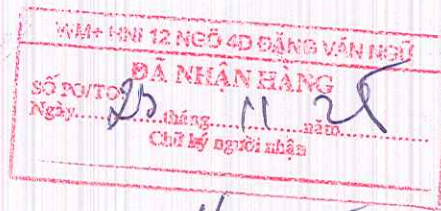 WM+ HNI 12 NGÕ 4D ĐẶNG VĂN NGỮ
ĐÃ NHẬN HÀNG
SỐ PO/TO
Ngày........tháng....11....năm........
Chữ ký người nhận